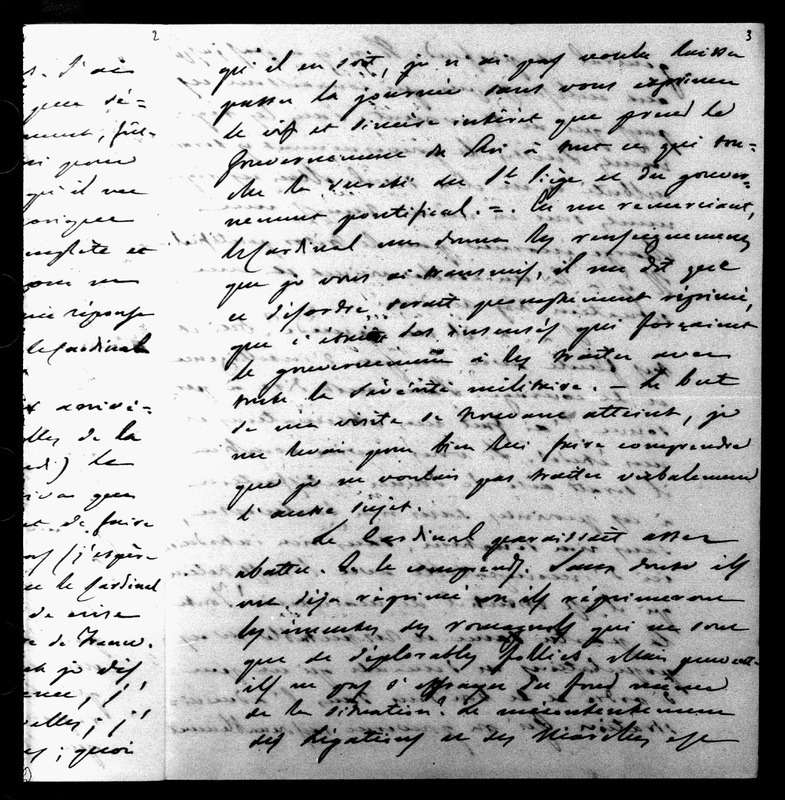 2
s. J'ai
que dé=
ment, fût-
si pour
qu'il me
complète et
pour me
une réponse
le Cardinal
arrivé=
elles de la
di) le
que
et de faire
(j'espère
le Cardinal
de crise
de France.
et je dis
j'
elles; j'
; quoi
3
qu'il en soit, je n'ai pas voulu laisser
passer la journée sans vous exprimer
le vif et sincère intérêt que prend le
Gouvernement du Roi à tout ce qui tou=
che la sûreté du St Siège et du gouver=
nement pontifical. =. En me remerciant,
le Cardinal me donna les renseignemens
que je vous ai transmis, il me dit que
ce désordre serait promptement réprimé,
que c'étaient des insensés qui forçaient
le gouvernement à les traiter avec
toute la sévérité militaire. — Le but
de ma visite se trouvant atteint, je
me levai pour bien lui faire comprendre
que je ne voulais pas traiter verbalement
d'autre sujet.
Le Cardinal paraissait assez
abattu. Je le comprends. Sans doute ils
ont déjà réprimé ou ils réprimeront
les émeutes des romagnols qui ne sont
que de déplorables folies. Mais peuvent-
ils ne pas s'effrayer du fond même
de la situation? Le mécontentement
des Légations et des Marches est